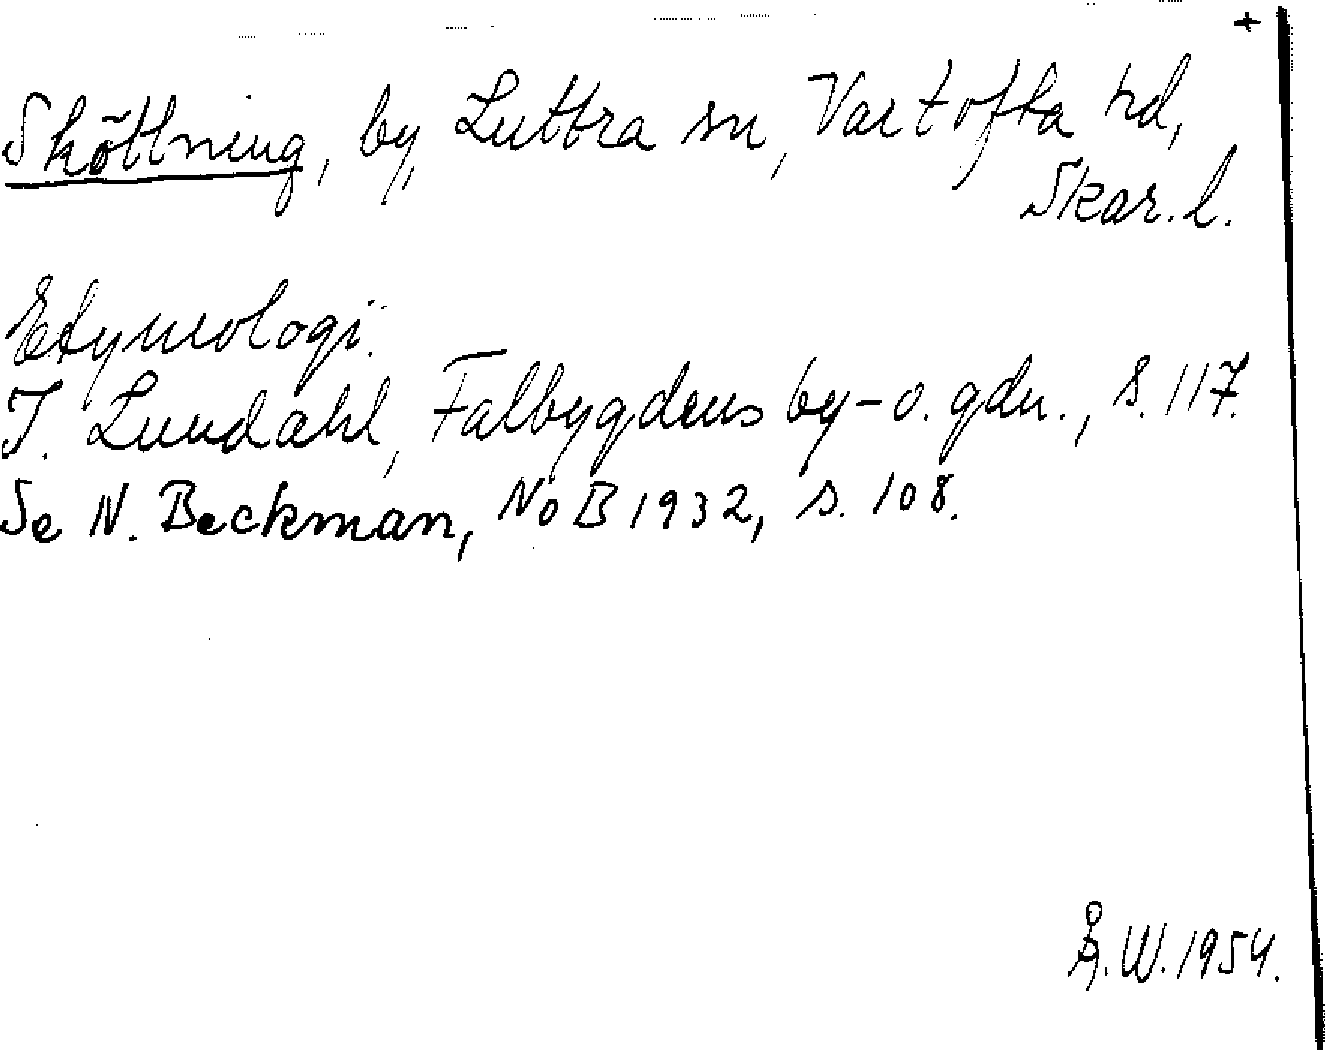 +
Sköttning, by, Luttra sn, Vartofta hd,
Skar. l.
Etymologi.
I. Lundahl, Falbygdens by- o. gdn., s. 117.
Se N. Beckman, NoB 1932, s. 108.
Å. W. 1954.